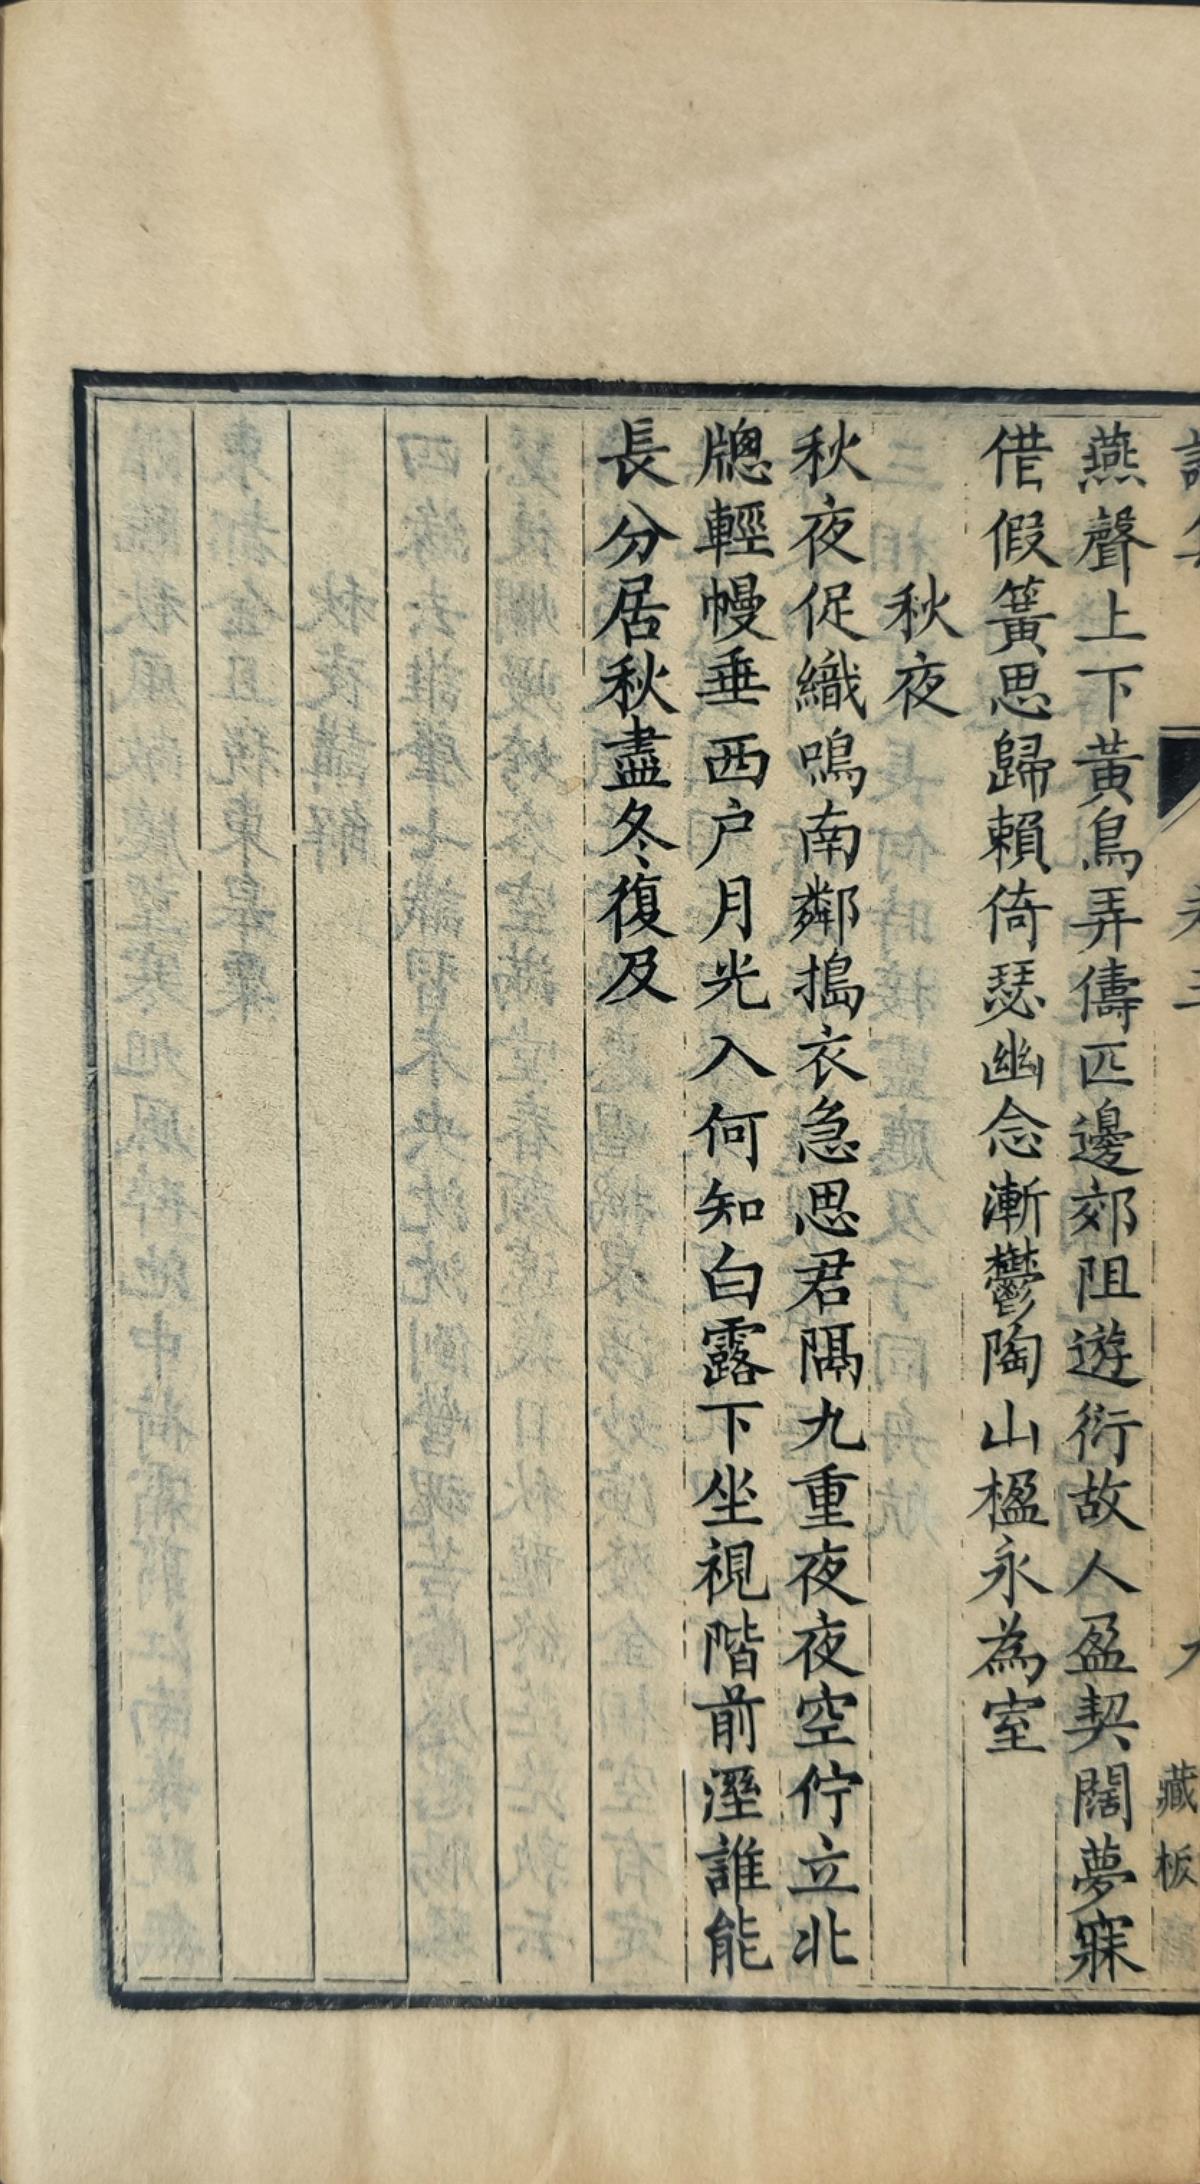 燕聲上下黃鳥弄儔匹邊郊阻遊衍故人盈契闊夢寐
借假簧思歸賴倚瑟幽念漸鬱陶山楹永為室
秋夜
秋夜促織鳴南鄰搗衣急思君隔九重夜夜空佇立北
牕輕幔垂西户月光入何知白露下坐視階前溼誰能
長分居秋盡冬復及
藏板